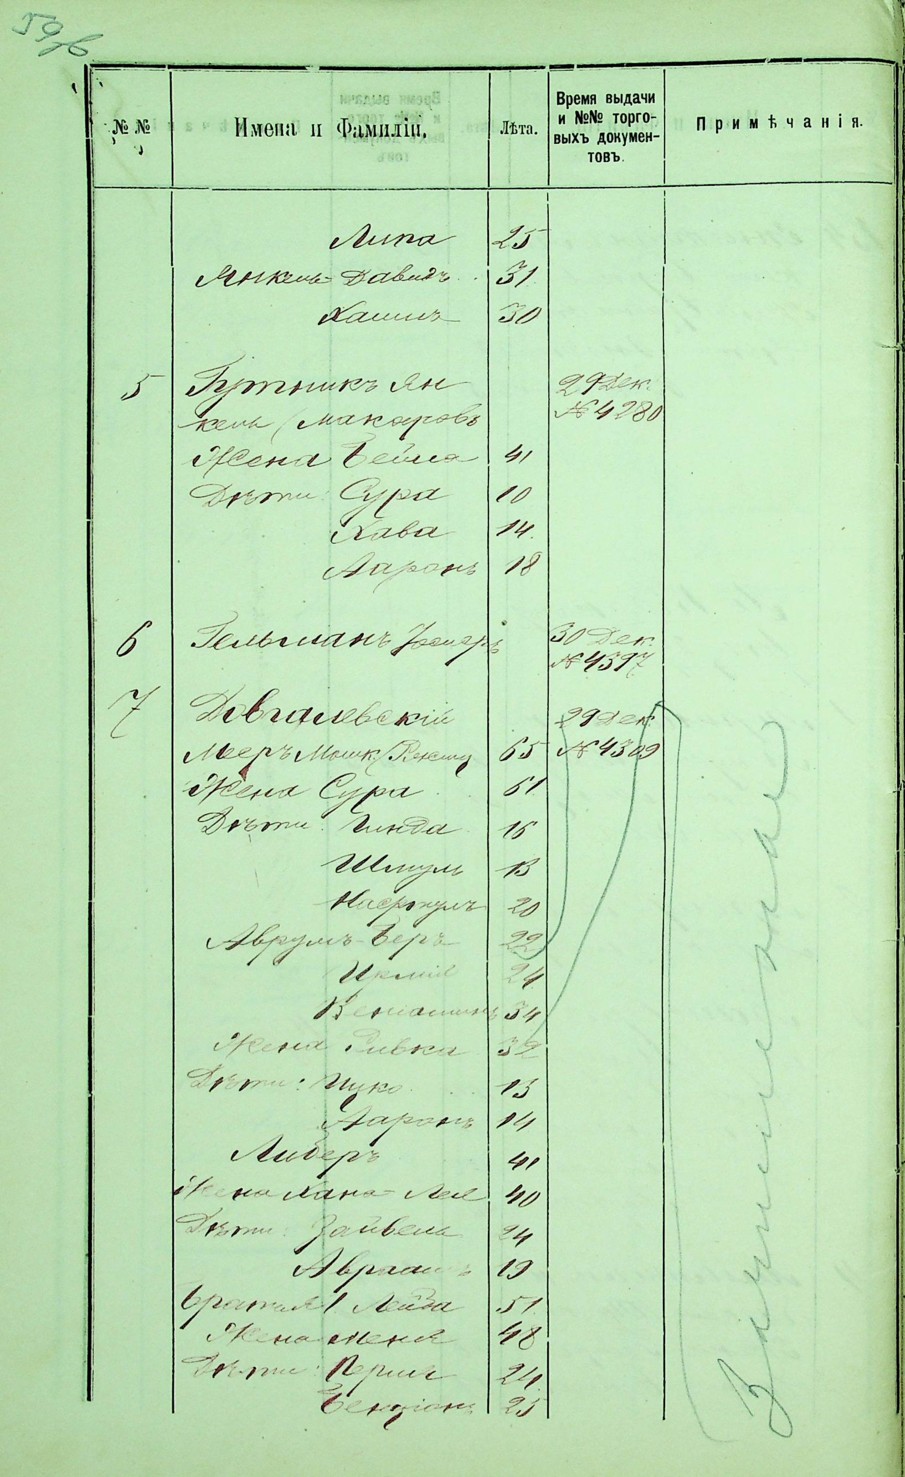 59об
№№ Имена и Фамиліи. Лѣта. Время выдачи и №№ торговыхъ документовъ. Примѣчанія.
Липа 25
Янкель-Давидъ 31
Хаимъ 30
5 Бутникъ Ян 29 Дек.
кель (Макаровъ №4280
Жена Бейла 41
Дѣти: Сура 10
Хава 14
Ааронъ 18
6 Гельманъ 30 Дек.
№4397
7 Довгалевскій 29 Дек.
Мееръ Мошк 65 №4309
Жена Сура 61
Дѣти: Гинда 16
Шмуль 13
20
Аврумъ-Беръ 22
24
Веніаминъ 34
Жена Ривка 32
Дѣти: 13
Ааронъ 14
Либеръ 41
Жена Хана-Лея 40
Дѣти: Зайвель 24
Авраамъ 19
Братья 1 Лейба 51
Жена Меня 48
Дѣти: 24
Бенціонъ 25